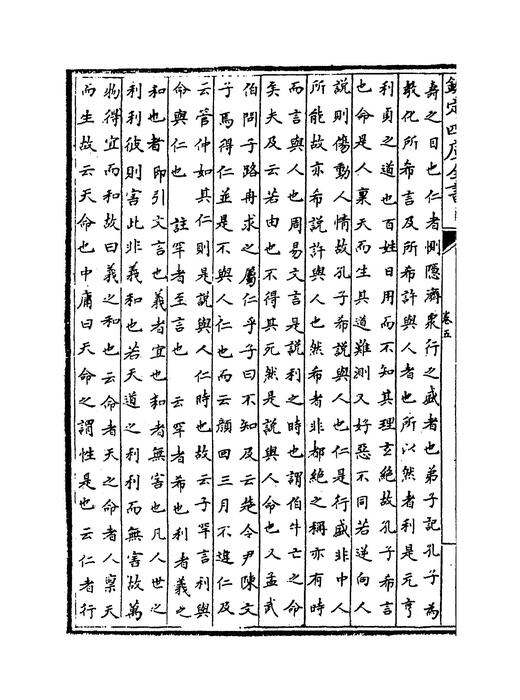 欽定四庫全書
卷五
壽之目也仁者惻隱濟衆行之盛者也弟子記孔子為
教化所希言及所希許與人者也所以然者利是元亨
利貞之道也百姓日用而不知其理玄絶故孔子希言
也命是人禀天而生其道難測又好惡不同若逆向人
説則傷動人情故孔子希説與人也仁是行盛非中人
所能故亦希説許與人也然希者非都絶之稱亦有時
而言與人也周易文言是説利之時也謂伯牛亡之命
矣夫及云若由也不得其死然是説與人命也又孟武
伯問子路冉求之屬仁乎子曰不知及云楚令尹陳文
子焉得仁並是不與人仁也而云顔回三月不違仁及
云管仲如其仁則是説與人仁時也故云子罕言利與
命與仁也　註罕者至言也　云罕者希也利者義之
和也者即引文言也義者宜也和者無害也凡人世之
利利彼則害此非義和也若天道之利利而無害故萬
物得宜而和故曰義之和也云命者天之命者人禀天
而生故云天命也中庸曰天命之謂性是也云仁者行